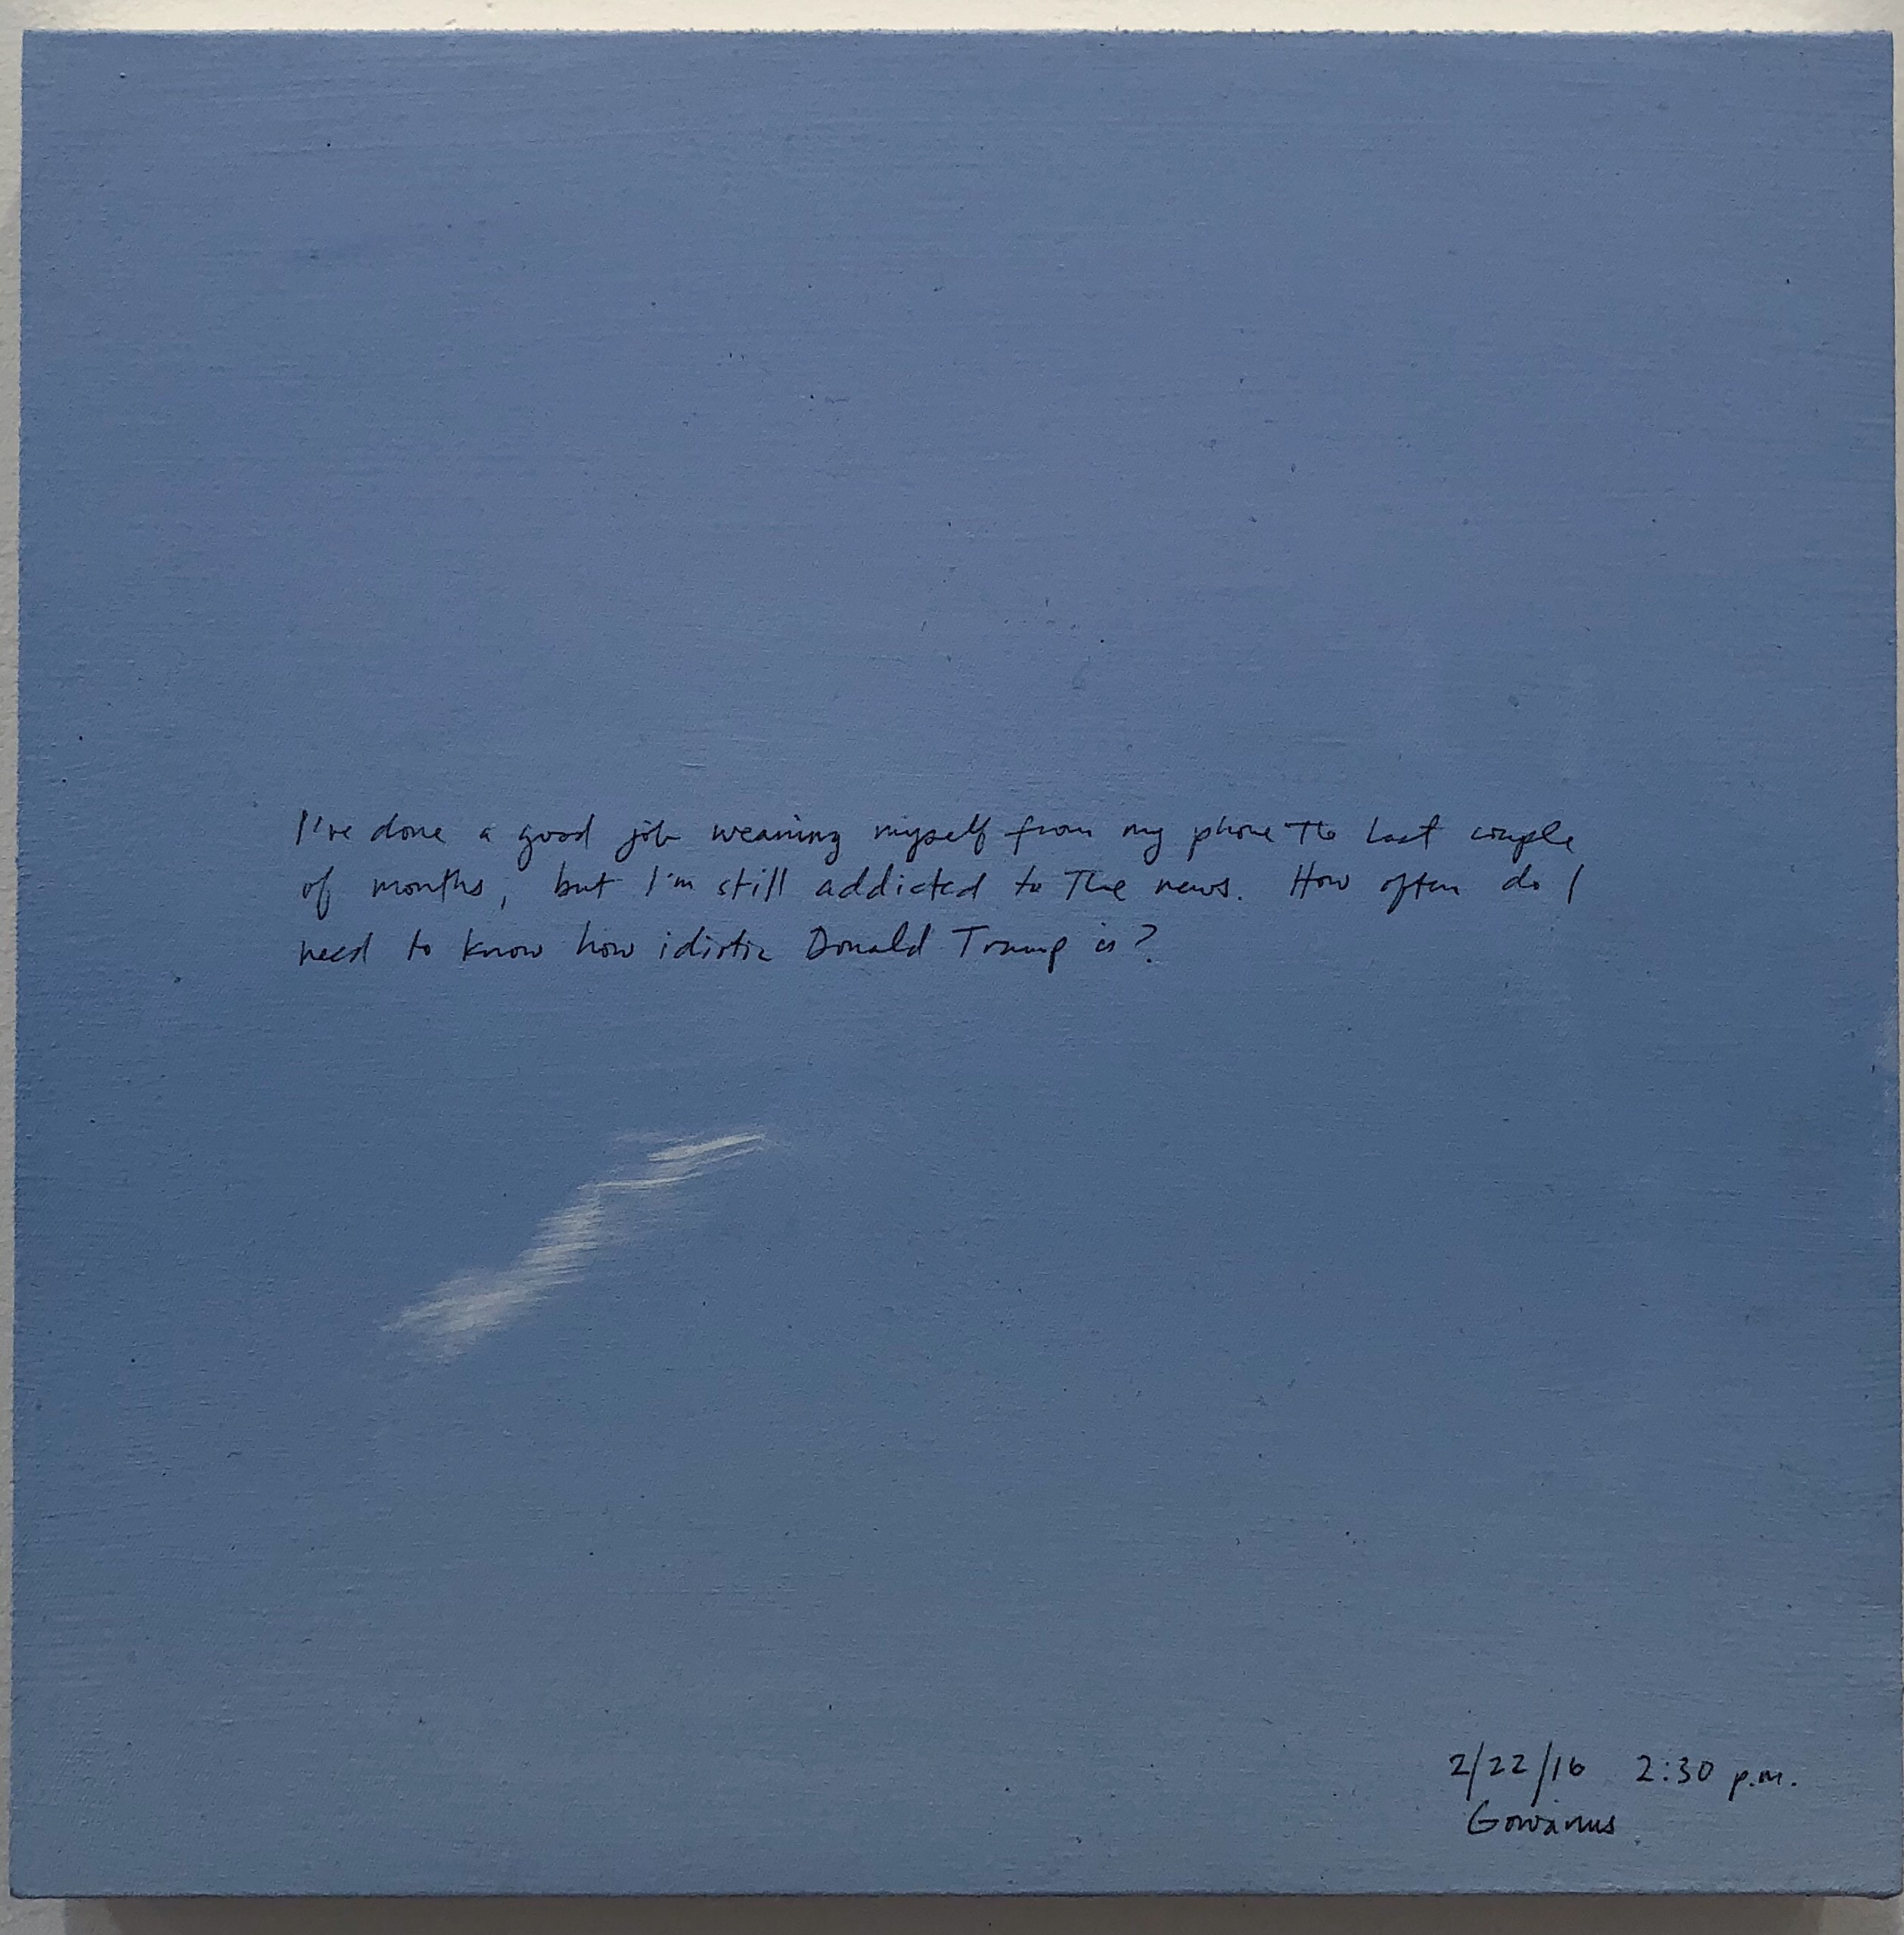 I've done a good job weaning myself from my phone the last couple
of months, but I'm still addicted to the news. How often do I
need to know how idiotic Donald Trump is?
2/22/16 2:30 p.m.
Gowanus